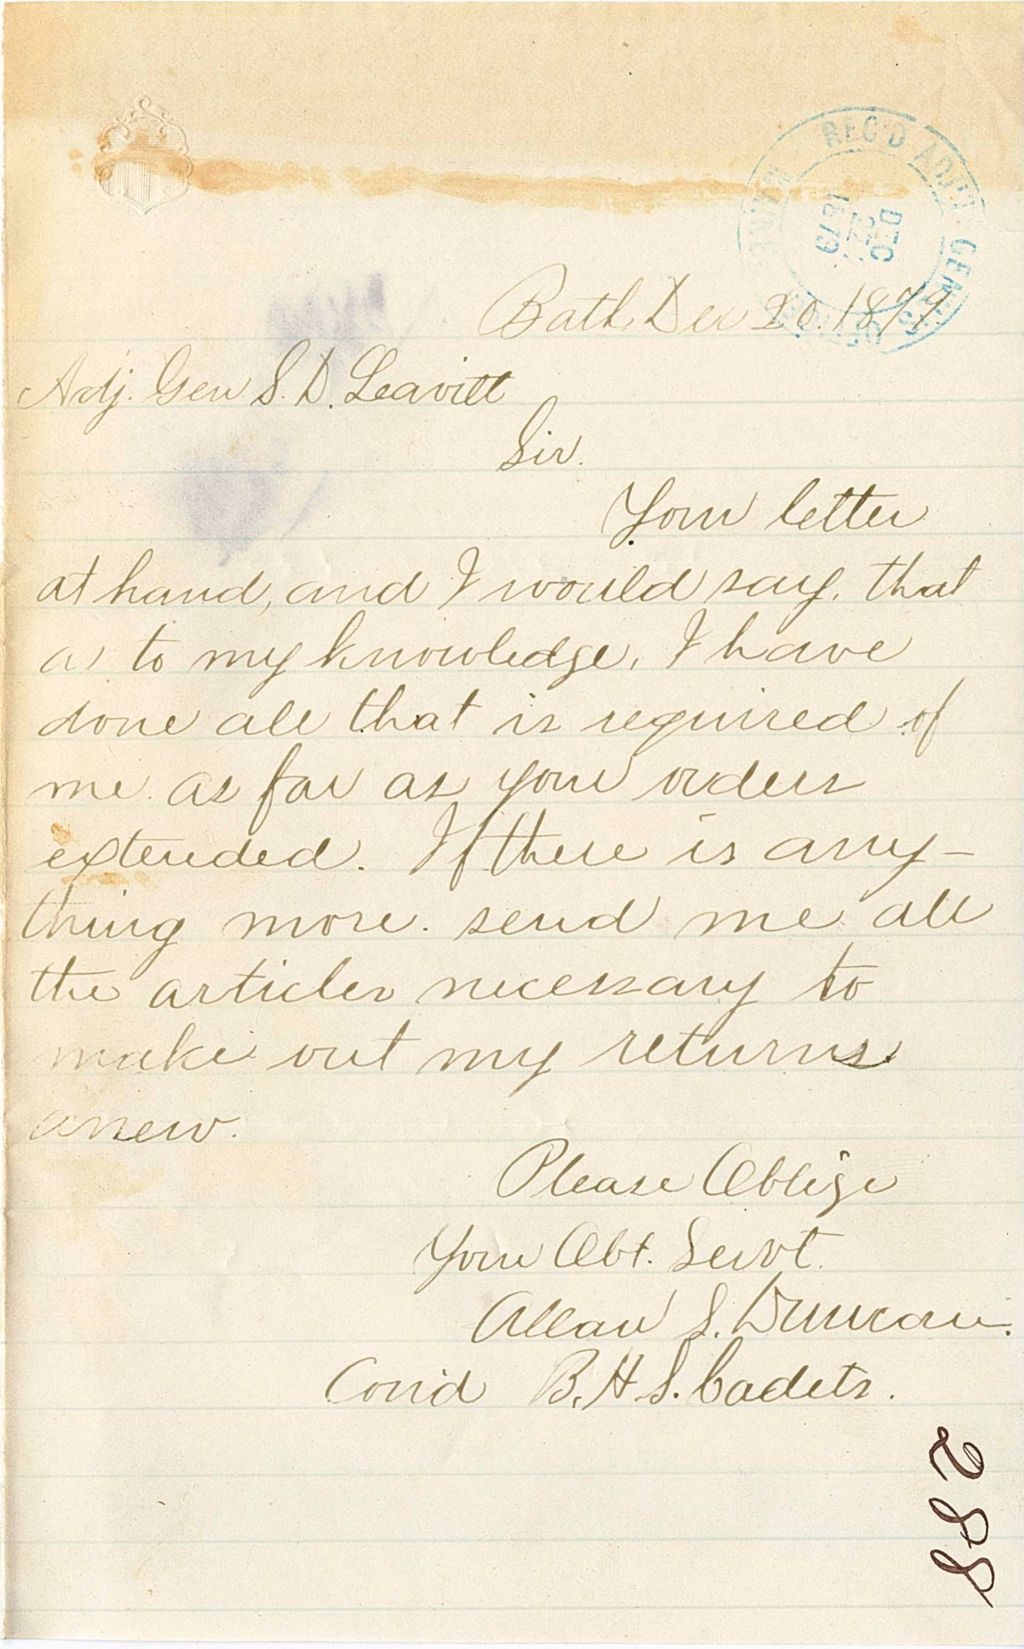 REC'D ADJT. GEN
DEC 22 1879
MAINE
Bath Dec 20. 1879
Adj. Gen S. D. Leavitt
Sir.
Your letter
at hand, and I would say, that
as to my knowledge, I have
done all that is required of
me as far as your orders
extended. If there is any-
thing more. send me all
the articles necessary to
make out my returns
anew.
Please Oblige
Your Obt. Servt.
Allan S. Duncan.
Com'd B. H. S. Cadets.
288